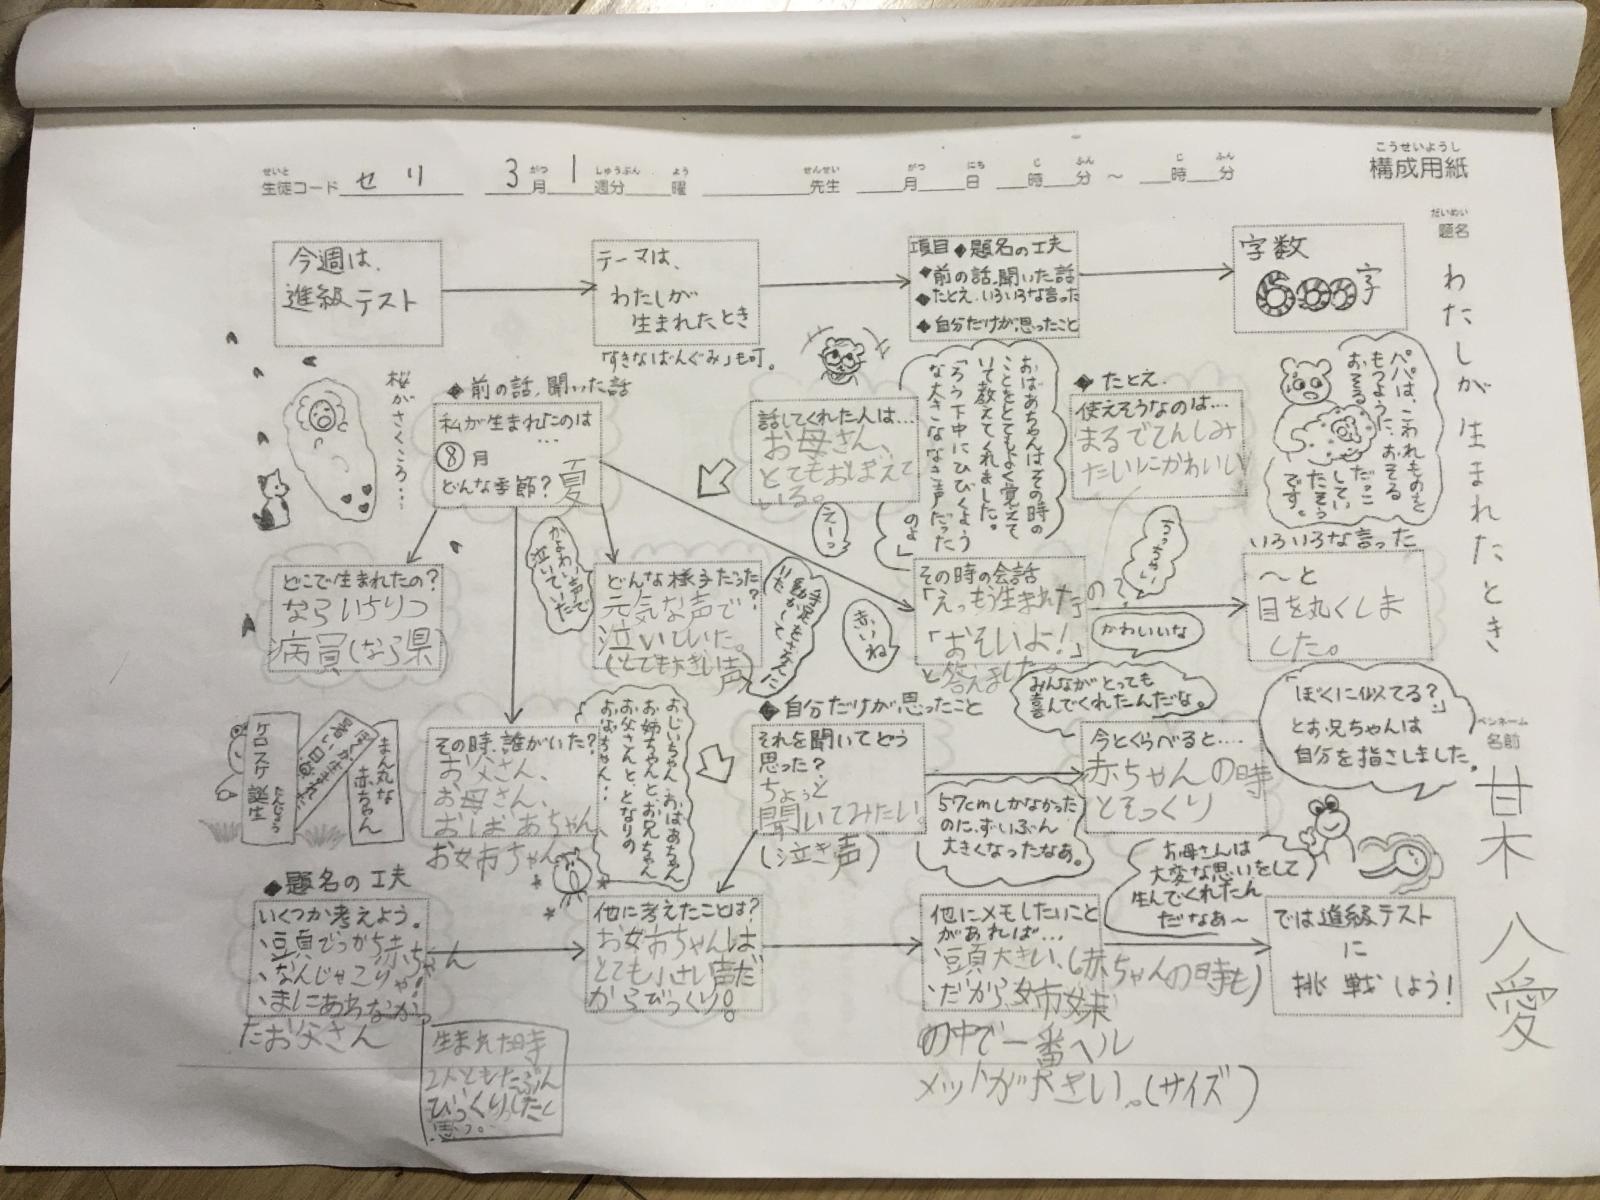 構成用紙
こうせいようし
生徒コード セリ 3月 1週分 曜 先生 月 日 時 分 〜 時 分
せいと がつ しゅうぶん よう せんせい がつ にち じ ふん じ ふん
題名
だいめい
わたしが生まれたとき
ペンネーム
名前
甘木 八愛
今週は、
進級テスト
テーマは、
わたしが
生まれたとき
「すきなばんぐみ」も可。
項目◆題名の工夫
◆前の話、聞いた話
◆たとえ、いろいろな言った
◆自分だけが思ったこと
字数
600字
桜がさくころ…
◆前の話、聞いた話
私が生まれたのは
…
⑧月
どんな季節?夏
話してくれた人は…
お母さん、
とてもおぼえて
いる。
えーっ
おばあちゃんはその時の
ことをとてもよく覚えて
いて教えてくれました。
「ろう下中にひびくよう
な大きななき声だった
のよ」
◆たとえ、
使えそうなのは…
まるでてんしみ
たいにかわいい
パパは、こわれものを
もつように、おそる
おそる
だっこ
してい
たそう
です。
どこで生まれたの?
ならいちりつ
病員(なら県)
かよわい声で
泣いていた
どんな様子だった?
元気な声で
泣いていた。
(とても大きい声)
手足をさかんに
動かして
いた
赤いね
その時の会話
「えっもう生まれたの?」
「おそいよ!」
と答えました。
うっちゃい
かわいいな
いろいろな言った
〜と
目を丸くしま
した。
みんながとっても
喜んでくれたんだな。
「ぼくに似てる?」
とお兄ちゃんは
自分を指さしました。
ケロスケ誕生
たんじょう
ぼくが生まれた
暑い日
まん丸な
赤ちゃん
その時、誰がいた?
お父さん、
お母さん、
おばあちゃん、
お姉ちゃん
おじいちゃん、おばあちゃん
お姉ちゃんとお兄ちゃん
お父さんと、となりの
おばちゃん…
◆自分だけが思ったこと
それを聞いてどう
思った?
ちょっと
聞いてみたい。
(泣き声)
57cmしかなかった
のに、ずいぶん
大きくなったなあ。
今とくらべると…
赤ちゃんの時
とそっくり
お母さんは
大変な思いをして
生んでくれたん
だなあ〜
◆題名の工夫
いくつか考えよう。
、頭でっかち赤ちゃん
、なんじゃこりゃ!
、まにあわなかっ
たお父さん
他に考えたことは?
お姉ちゃんは
とても小さい声だ
からびっくり。
他にメモしたいこと
があれば…
、頭大きい、(赤ちゃんの時も)
だから姉妹
の中で一番ヘル
メットが大きい。(サイズ)
では進級テスト
に
挑戦しよう!
生まれた時
2人ともたぶん
びっくりしたと
思う。